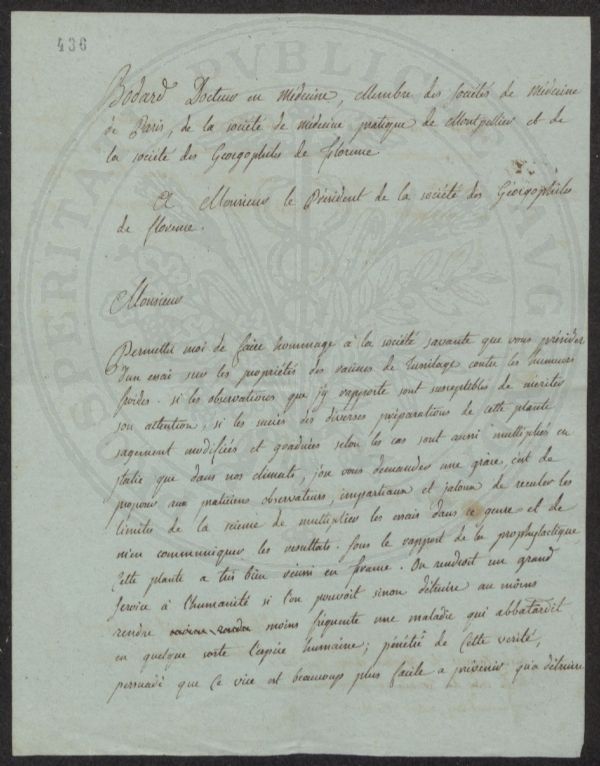 436
Bodard Docteur en Médecine, Membre des sociétés de médecine
de Paris, de la société de médecine pratique de Montpellier et de
la société des Georgophiles de florence.
A Monsieur le Président de la société des Géorgophiles
de florence.
Monsieur
Permettez moi de faire hommage à la société savante que vous présidez
d'un essai sur les propriétés des racines de Tussilage contre les humeurs
froides. si les observations que j'y rapporte sont susceptibles de mériter
son attention, si les succès des diverses préparations de cette plante
sagement modifiées et graduées selon les cas sont aussi multipliés en
italie que dans nos climats, j'ose vous demander une grâce, c'est de
proposer aux praticiens observateurs, impartiaux et jaloux de reculer les
limites de la science de multiplier les essais dans ce genre et de
m'en communiquer les resultats. sous le rapport de la prophylactique
Cette plante a très bien réussi en france. On rendroit un grand
service à l'humanité si l'on pouvoit sinon détruire au moins
rendre moins fréquente une maladie qui abbatardit
en quelque sorte l'espèce humaine; pénétré de Cette verité,
persuadé que Ce vice est beaucoup plus facile a prévenir qu'a détruire